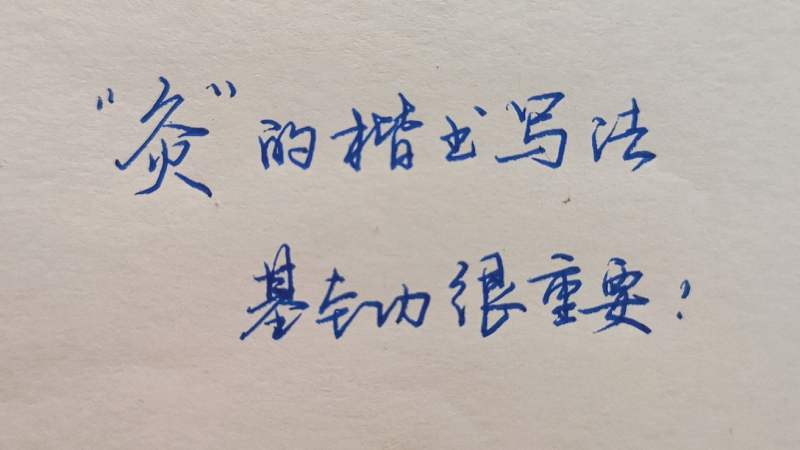 “灸”的楷书写法
基本功很重要！